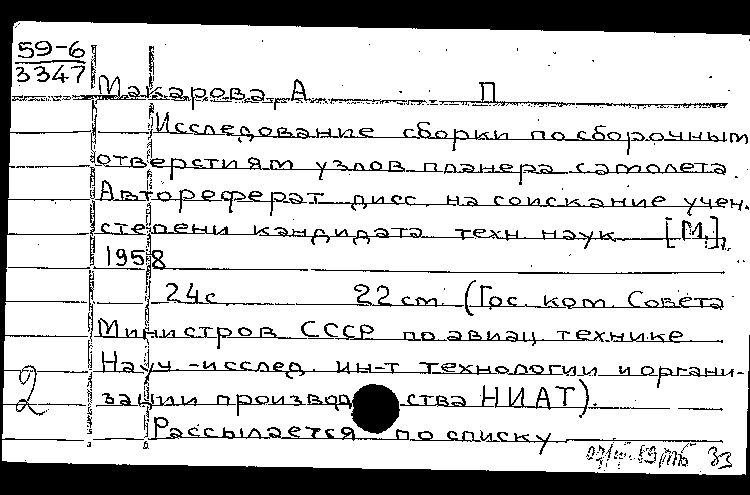 59-6
3347
Макарова, А П
Исследование сборки по сборочным
отверстиям узлов планера самолета.
Автореферат дисс. на соискание учен.
степени кандидата техн. наук [М.],
1958
24с. 22 см. (Гос. ком. Совета
Министров СССР по авиац. технике
Науч.-исслед. ин-т технологии и органи-
зации производства НИАТ).
2
Рассылается по списку
33